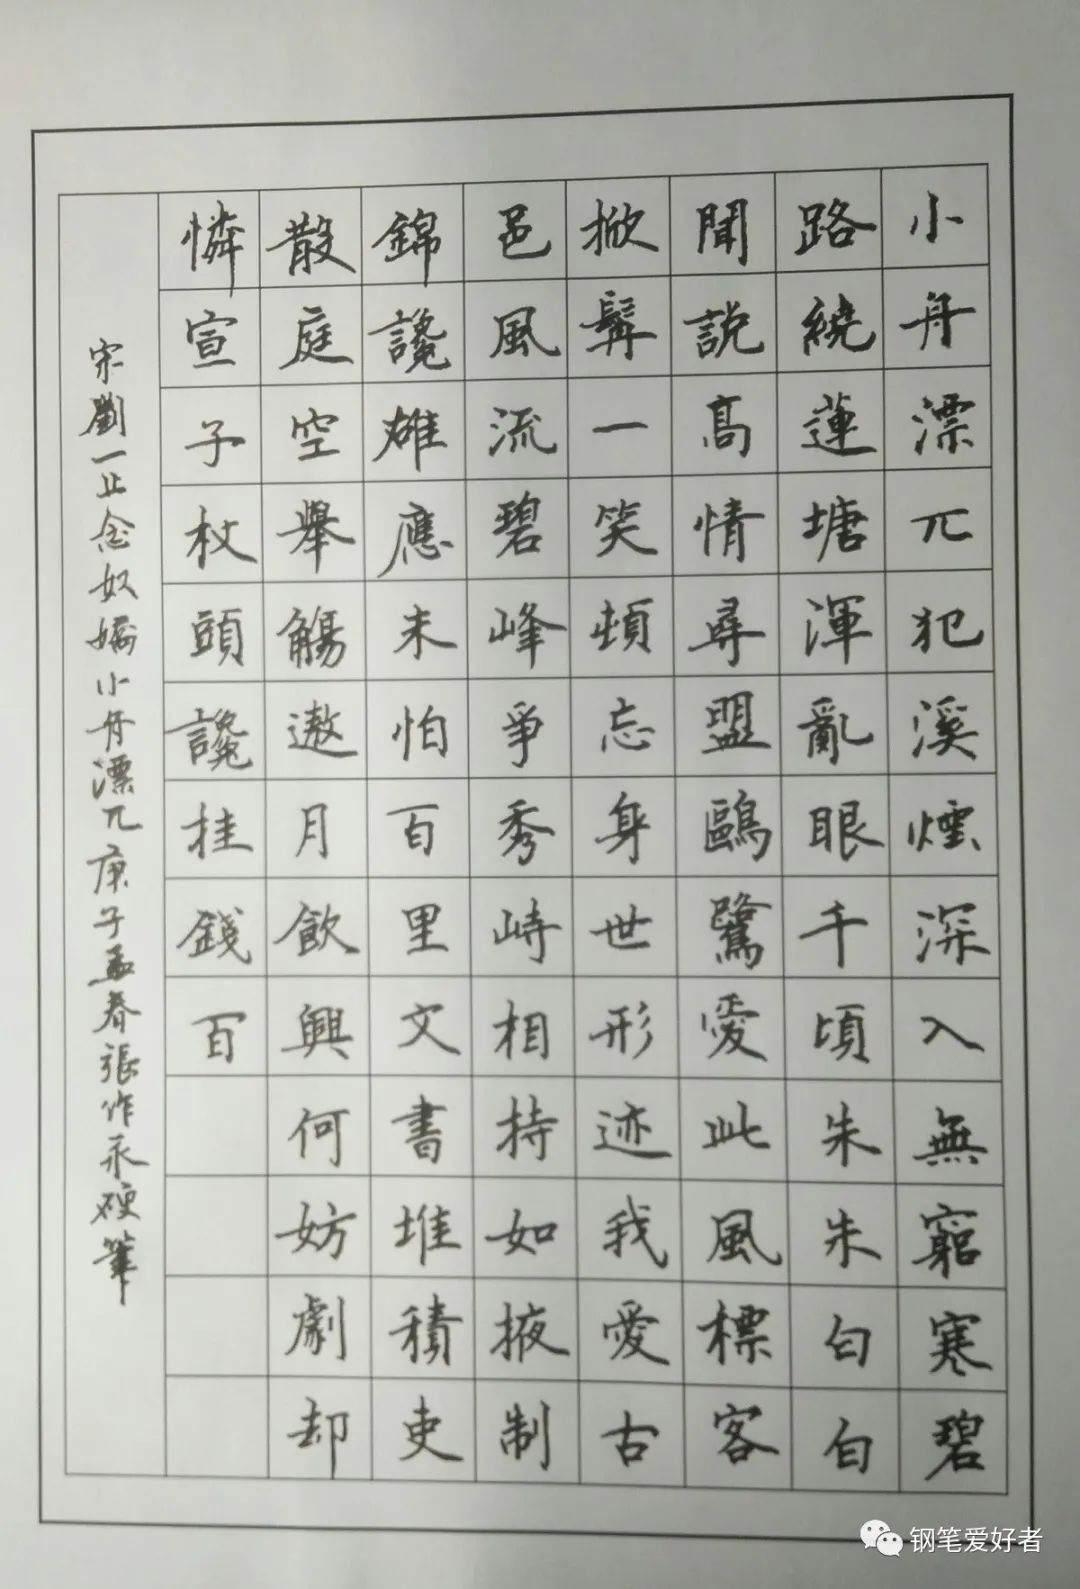 小舟漂兀犯溪煙深入無窮寒碧
路繞蓮塘渾亂眼千頃朱朱白白
聞說高情尋盟鷗鷺愛此風標客
掀髯一笑頓忘身世形迹我愛古
邑風流碧峰爭秀峙相持如掖制
錦讒雄應未怕百里文書堆積吏
散庭空舉觴邀月飲興何妨劇却
憐宣子杖頭讒桂錢百
宋劉一止念奴嬌小舟漂兀庚子孟春張作永硬筆
钢笔爱好者